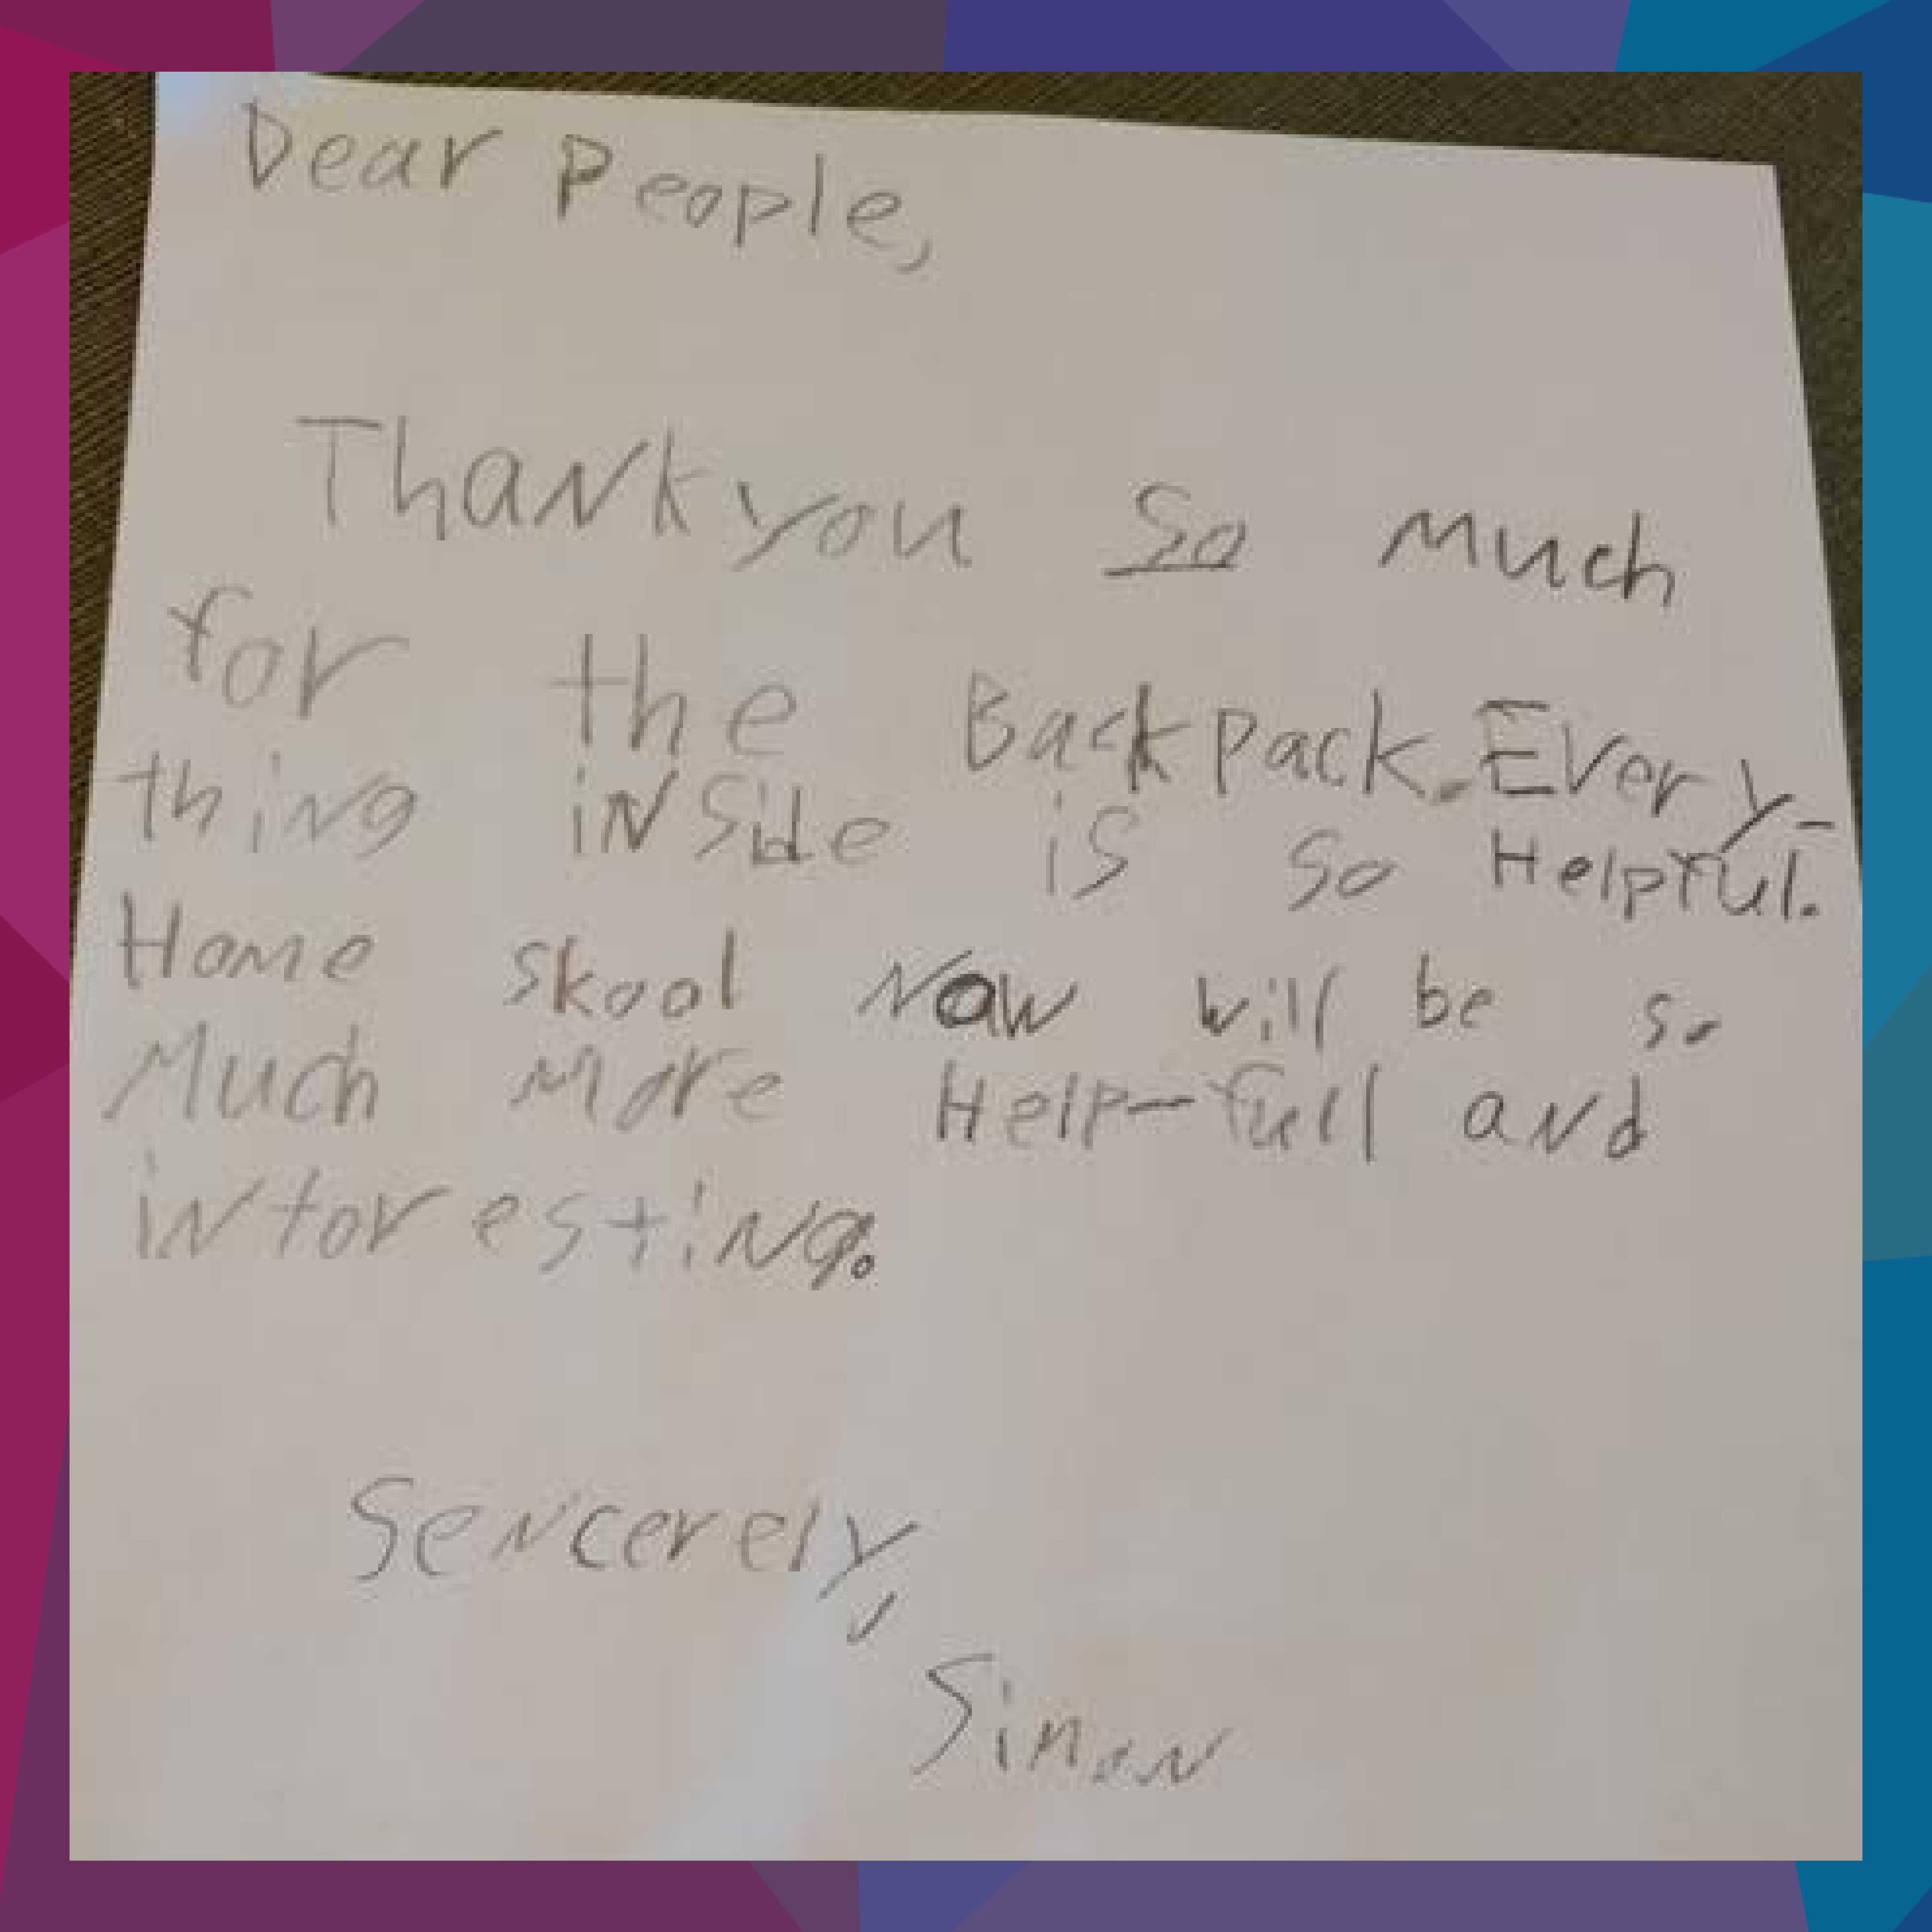 Dear People,
Thank you So Much
for the BackPack. Every-
thing inside is so Helpful.
Home skool Now will be so
Much More Help-full and
intoresting.
Sencerely,
Simon